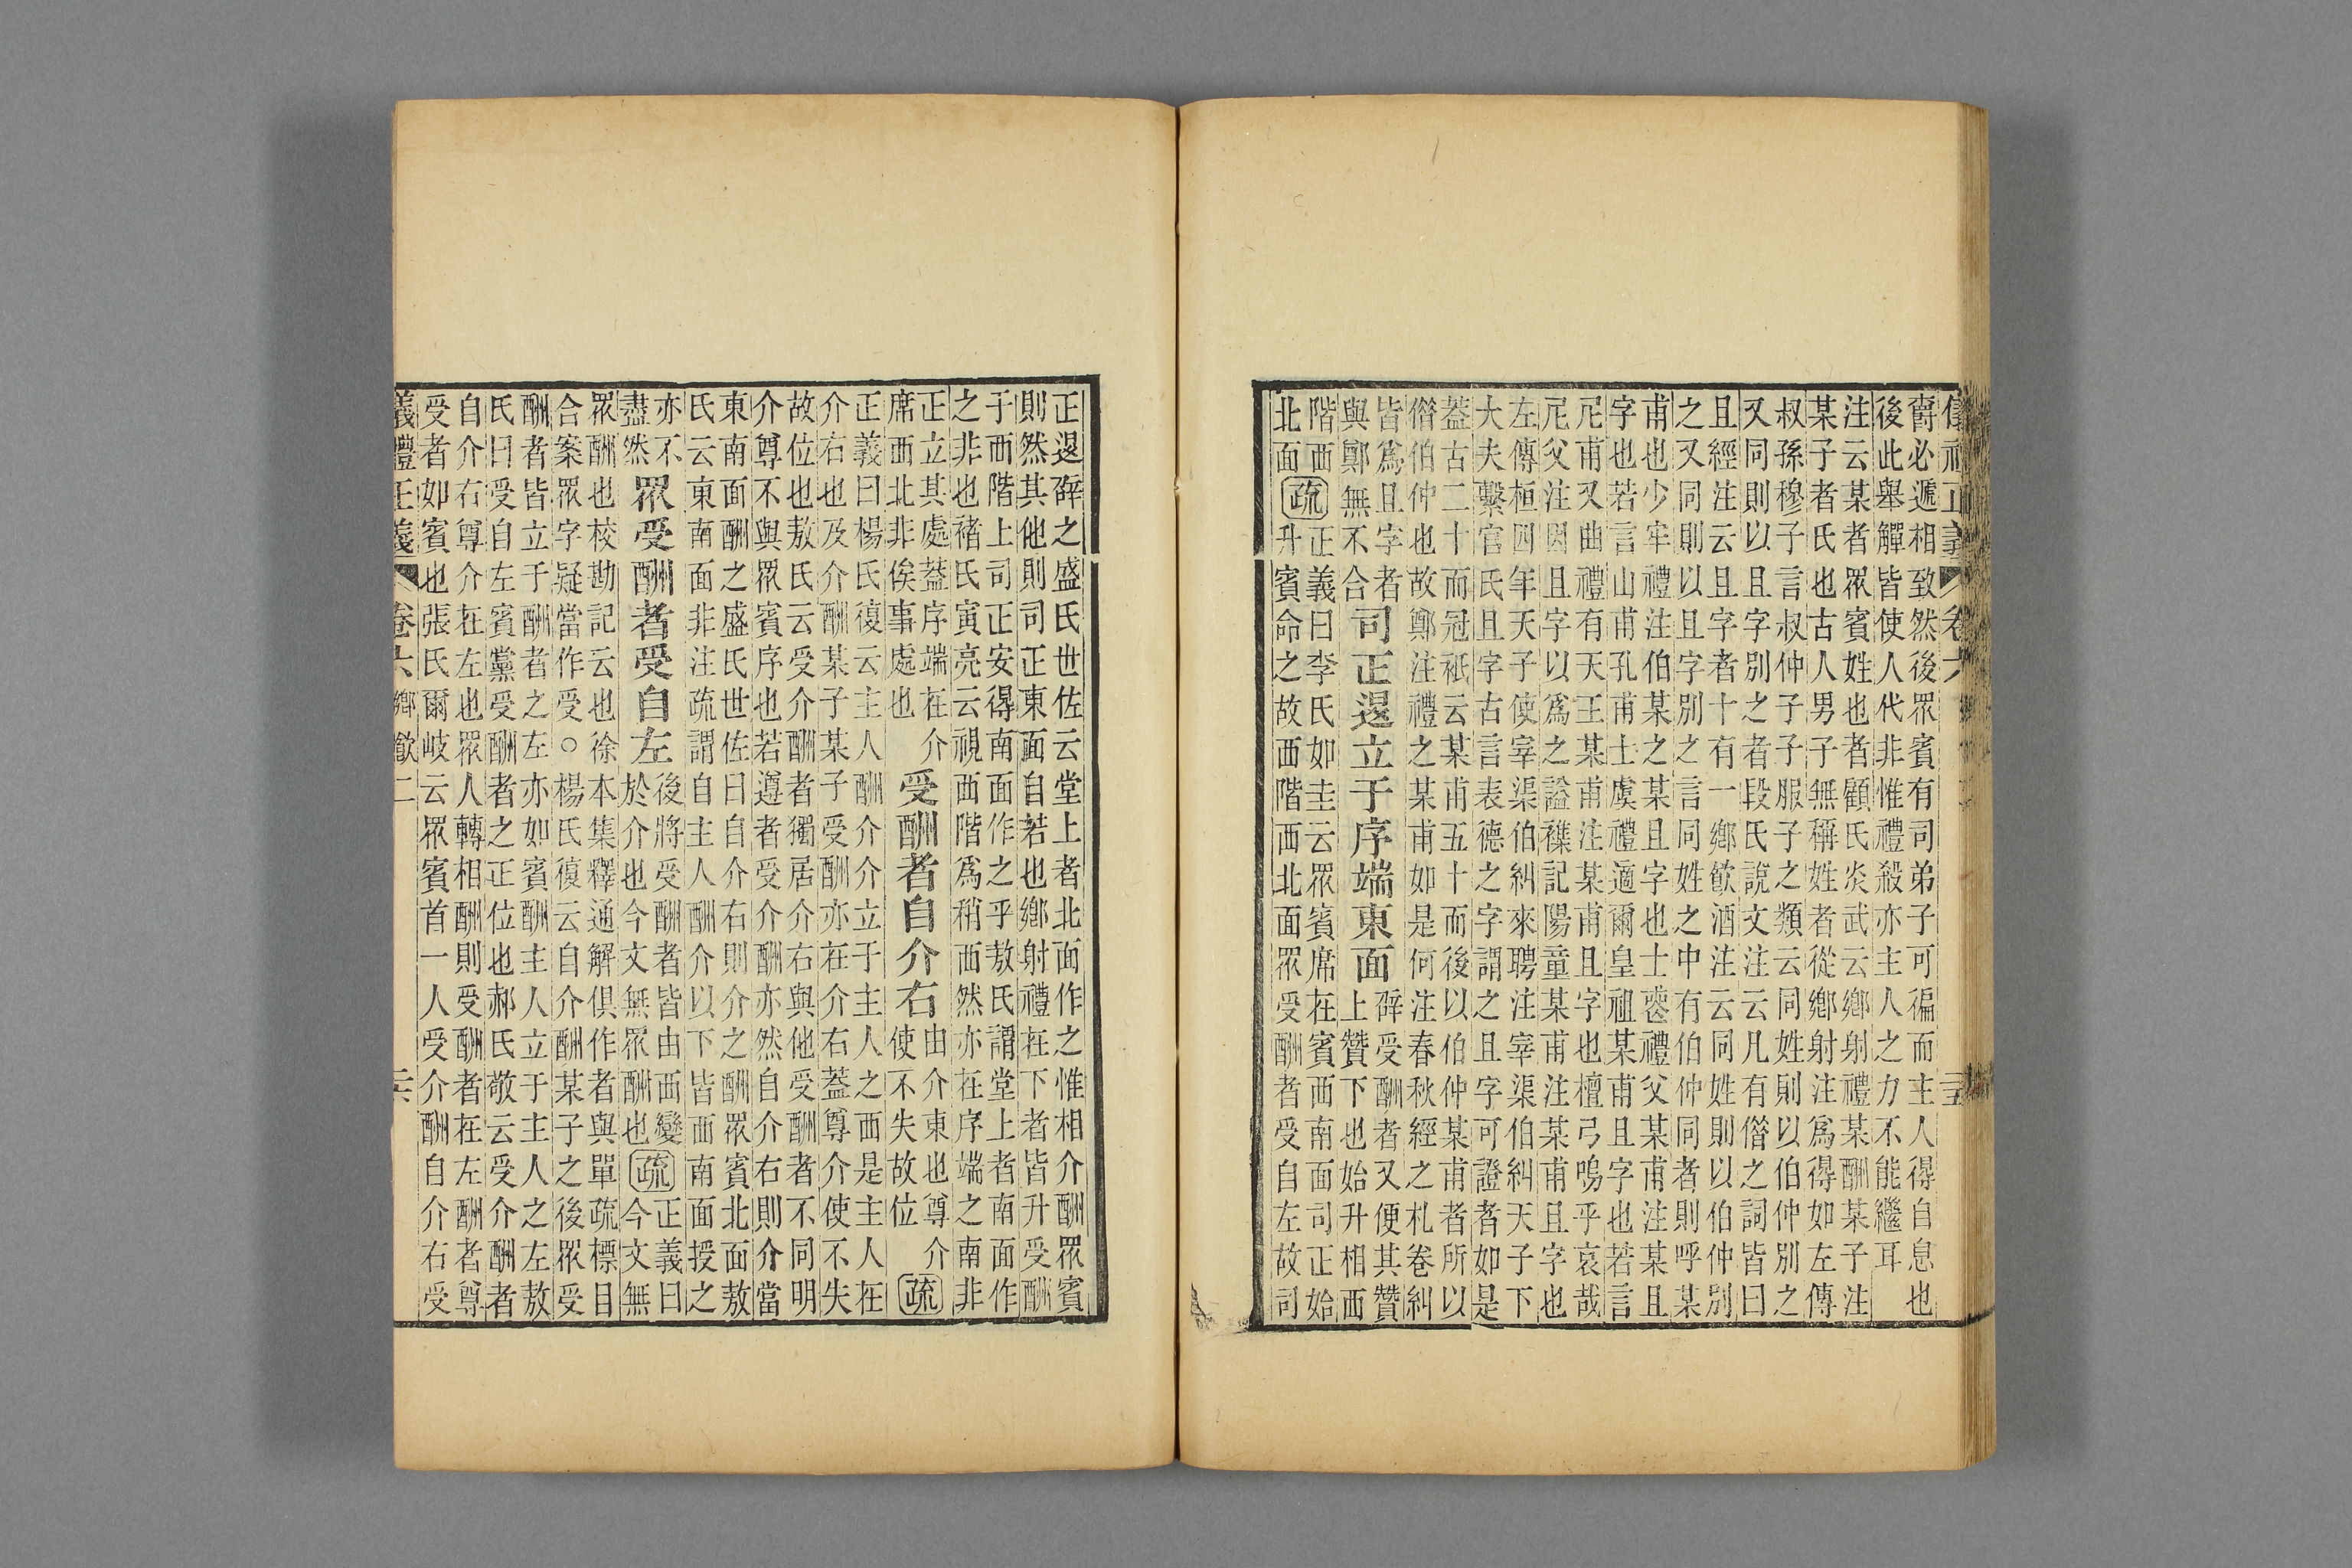 爵必遞相致然後眾賓有司弟子可徧而主人得自息也
後此舉觶皆使人代非惟禮殺亦主人之力不能繼耳
注云某者眾賓姓也者顧氏炎武云鄉射禮某酬某子注
某子者氏也古人男子無稱姓者從鄉射注爲得如左傳
叔孫穆子言叔仲子子服子之類云同姓則以伯仲別之
又同則以且字別之者段氏說文注云凡有偕之詞皆曰
且經注云且字者十有一鄉飲酒注云同姓則以伯仲別
之又同則以且字別之言同姓之中有伯仲同者則呼某
甫也少牢禮注伯某之某且字也士喪禮父某甫注某且
字也若言山甫孔甫士虞禮適爾皇祖某甫且字也若言
尼甫又曲禮有天王某甫注某甫且字也檀弓嗚乎哀哉
尼父注因且字以爲之謚襍記陽童某甫注某甫且字也
左傳桓四年天子使宰渠伯糾來聘注宰渠伯糾天子下
大夫繫官氏且字古言表德之字謂之且字可證者如是
蓋古二十而冠祇云某甫五十而後以伯仲某甫者所以
偕伯仲也故鄭注禮之某甫如是何注春秋經之札卷糾
皆爲且字者
與鄭無不合
司正退立于序端東面
辟受酬者又便其贊
上贊下也始升相西
階西
北面
疏
正義曰李氏如圭云眾賓席在賓西南面司正始
升賓命之故西階西北面眾受酬者受自左故司
正退辟之盛氏世佐云堂上者北面作之惟相介酬眾賓
則然其他則司正東面自若也鄉射禮在下者皆升受酬
于西階上司正安得南面作之乎敖氏謂堂上者南面作
之非也褚氏寅亮云視西階爲稍西然亦在序端之南非
正立其處蓋序端在介
席西北非俟事處也
受酬者自介右
由介東也尊介
使不失故位
疏
正義曰楊氏復云主人酬介介立于主人之西是主人在
介右也及介酬某子某子受酬亦在介右蓋尊介使不失
故位也敖氏云受介酬者獨居介右與他受酬者不同明
介尊不與眾賓序也若遵者受介酬亦然自介右則介當
東南面酬之盛氏世佐曰自介右則介之酬眾賓北面敖
氏云東南面非注疏謂自主人酬介以下皆面南面授之
亦不
盡然
眾受酬者受自左
後將受酬者皆由西變
於介也今文無眾酬也
疏
正義曰
今文無
眾酬也校勘記云也徐本集釋通解俱作者與單疏標目
合案眾字疑當作受○楊氏復云自介酬某子之後眾受
酬者皆立于酬者之左亦如賓酬主人立于主人之左敖
氏曰受自左賓黨受酬者之正位也郝氏敬云受介酬者
自介右尊介在左也眾人轉相酬則受酬者在左酬者尊
受者如賓也張氏爾岐云眾賓首一人受介酬自介右受
儀禮正義 卷六鄉飲二